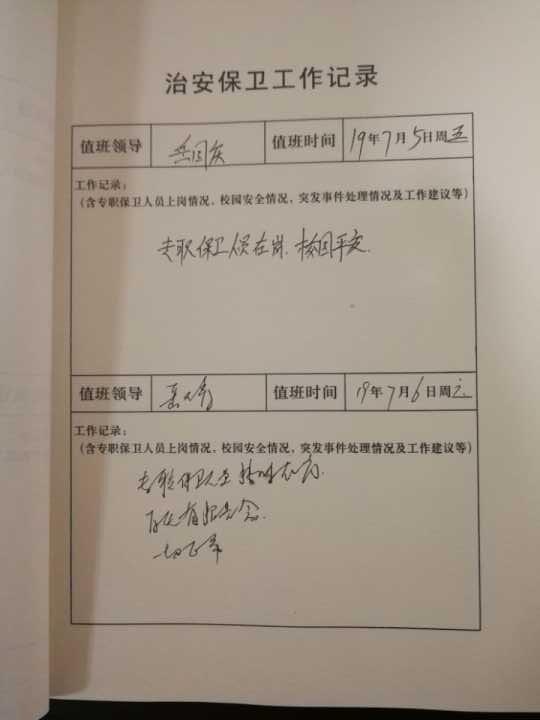 治安保卫工作记录
值班领导 岳国庆 值班时间 19年7月5日周五
工作记录：
（含专职保卫人员上岗情况，校园安全情况，突发事件处理情况及工作建议等）
专职保卫人员在岗.校园平安.
值班领导 值班时间 19年7月6日周六
工作记录：
（含专职保卫人员上岗情况，校园安全情况，突发事件处理情况及工作建议等）
专职保卫人员
一切正常